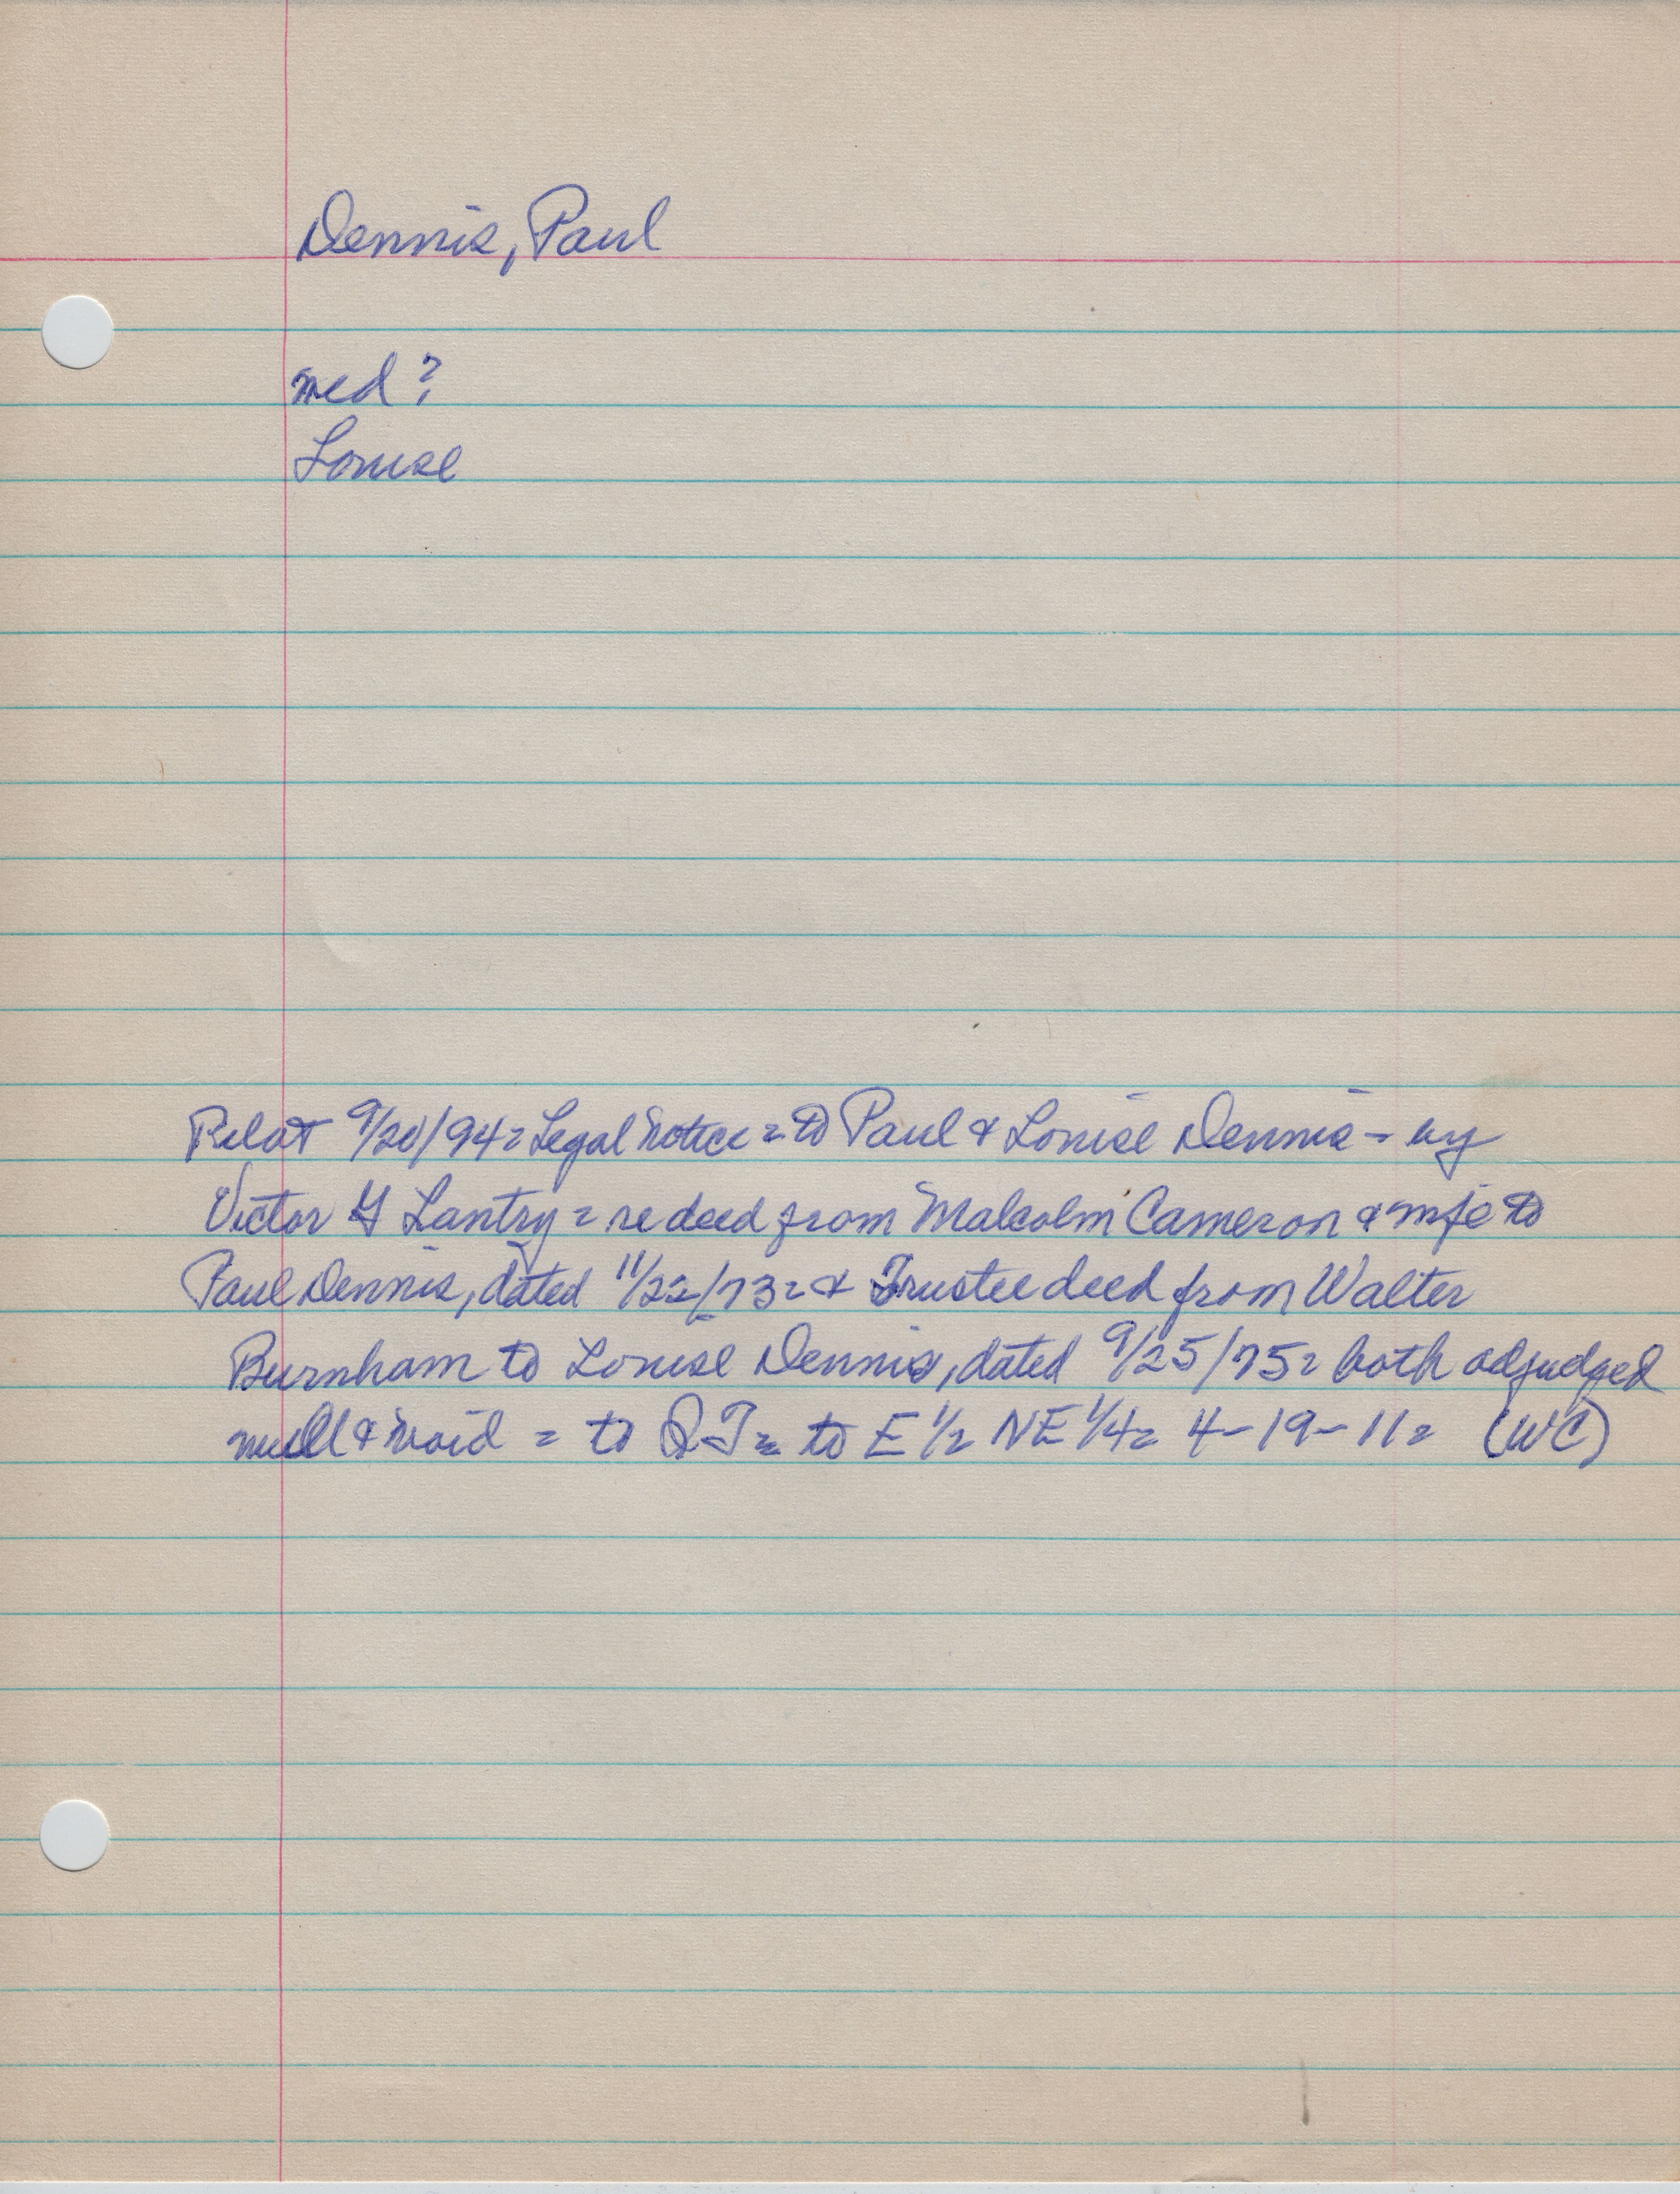 Dennis, Paul
med?
Louise
Pilot 9/20/94 = Legal notice = to Paul & Louise Dennis - by
Victor G Lantry = re deed from Malcolm Cameron & wife to
Paul Dennis, dated 11/22/73 = & Trustee deed from Walter
Burnham to Louise Dennis, dated 9/25/75 = both adjudged
null & void = to QT = to E 1/2 NE 1/4 = 4-19-11 = (WC)